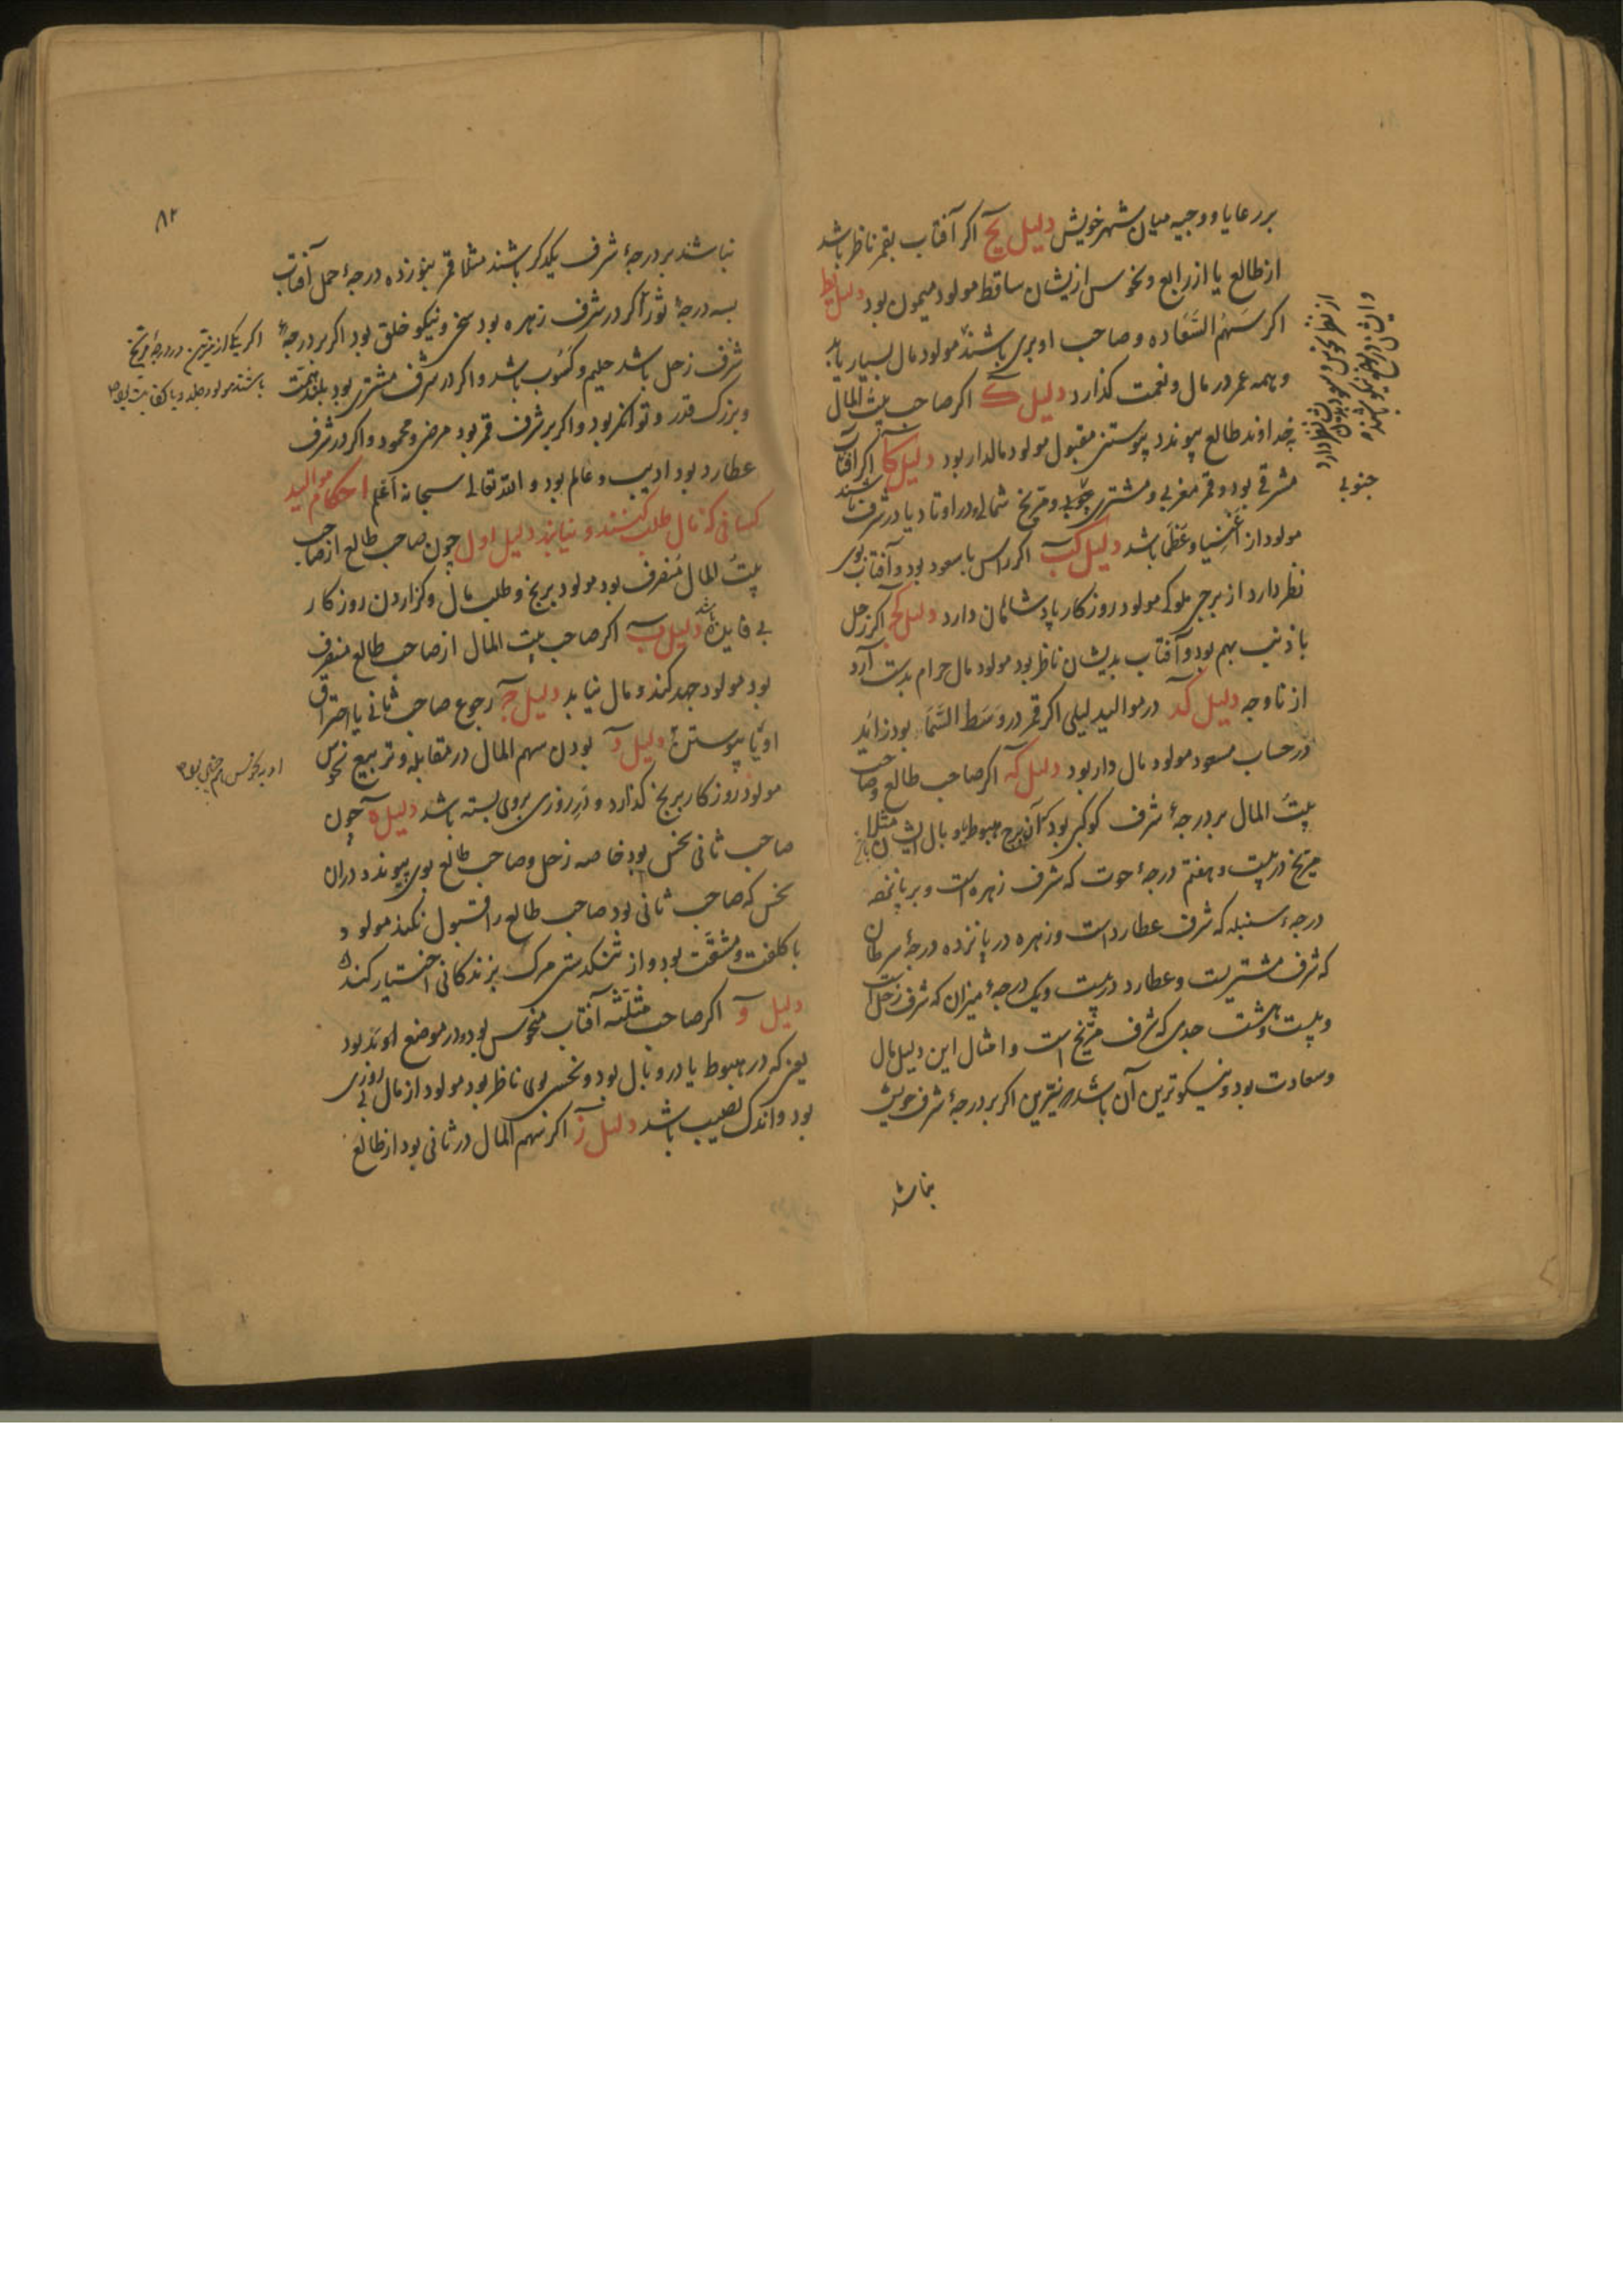 بر رعایا و وجیه میان شهر خویش دلیل یح اکر آفتاب بقمر ناظر باشد
از طالع یا از رابع و نحوس ازیشان ساقط مولود میمون بود دلیل یط
اکر سهم السعاده و صاحب او بری باشند مولود مال بسیار یابد
و همه عمر در مال و نعمت کذارد دلیل ک اکر صاحب بیت المال
بخداوند طالع پیوندد پیوستنی مقبول مولود مالدار بود دلیل کا اکر آفتاب
مشرقی بود و قمر مغربی و مشتری جنوبی و مریخ شمالی و در اوتاد یا در شرف باشند
مولود از اغنیا و عظما باشد دلیل کب اکر راس با سعود بود و آفتاب بوی
نظر دارد از برجی ملوکه مولود روزکار پادشاهان دارد دلیل کج اکر زحل
با ذنب بهم بود و آفتاب بدیشان ناظر بود مولود مال حرام بدست آرد
از ناوجه دلیل کد در موالید لیلی اکر قمر در وسط السماء بود زاید
در حساب مسعود مولود مال دار بود دلیل که اکر صاحب طالع و صاحب
بیت المال بر درجهٔ شرف کوکبی بود که آن برج هبوط یا وبال ایشان باشد مثلا
مریخ در بیست و هفتم درجهٔ حوت که شرف زهره است و بر پانزده
درجهٔ سنبله که شرف عطارد است و زهره در پانزده درجهٔ سرطان
که شرف مشتریست و عطارد در بیست و یک درجهٔ میزان که شرف زحل است
و بیست و هشت جدی که شرف مریخ است و امثال این دلیل مال
و سعادت بود و نیکوترین آن باشد که نیرین اکر بر درجهٔ شرف خویش
نباشند
از نظر نحوس و سعود بدیشان نظر دارد
و ایشان در مواضع نیکو باشند
جنوبی
۸۲
نباشند بر درجهٔ شرف یکدکر باشند مثلا قمر بنوزده درجهٔ حمل آفتاب
بسه درجهٔ ثور اکر در شرف زهره بود سخی و نیکو خلق بود اکر بر درجهٔ
شرف زحل باشد حلیم و کسوب باشد و اکر در شرف مشتری بود بلند همت
و بزرک قدر و توانکر بود و اکر بر شرف قمر بود مرضی و محمود و اکر در شرف
عطارد بود ادیب و عالم بود و الله تعالی سبحانه اعلم احکام موالید
کسانی که مال طلب کنند و نیابند دلیل اول چون صاحب طالع از صاحب
بیت المال منصرف بود مولود برنج و طلب مال و کزاردن روزکار
بی فایده باشد دلیل ب اکر صاحب بیت المال از صاحب طالع منصرف
بود مولود جهد کند و مال نیابد دلیل ج رجوع صاحب ثانی یا احتراق
او یا پیوستن دلیل د بودن سهم المال در مقابله و تربیع نحوس
مولود روزکار برنج کذارد و در روزی بروی بسته باشد دلیل ه چون
صاحب ثانی نحس بود خاصه زحل و صاحب طالع بوی پیوندد و آن
نحس که صاحب ثانی بود صاحب طالع را قبول نکند مولود
با کلفت و مشقت بود و از تنکدستی مرک بزندکانی اختیار کند
دلیل و اکر صاحب مثلثه آفتاب منحوس بود و در موضع او بد بود
یعنی که در هبوط یا در وبال بود و نحسی بوی ناظر بود مولود از مال بی روزی
بود و اندک نصیب باشد دلیل ز اکر سهم المال در ثانی بود از طالع
اکر یکی از نیرین در درجهٔ مریخ
باشند مولود جلد و با کفایت بود